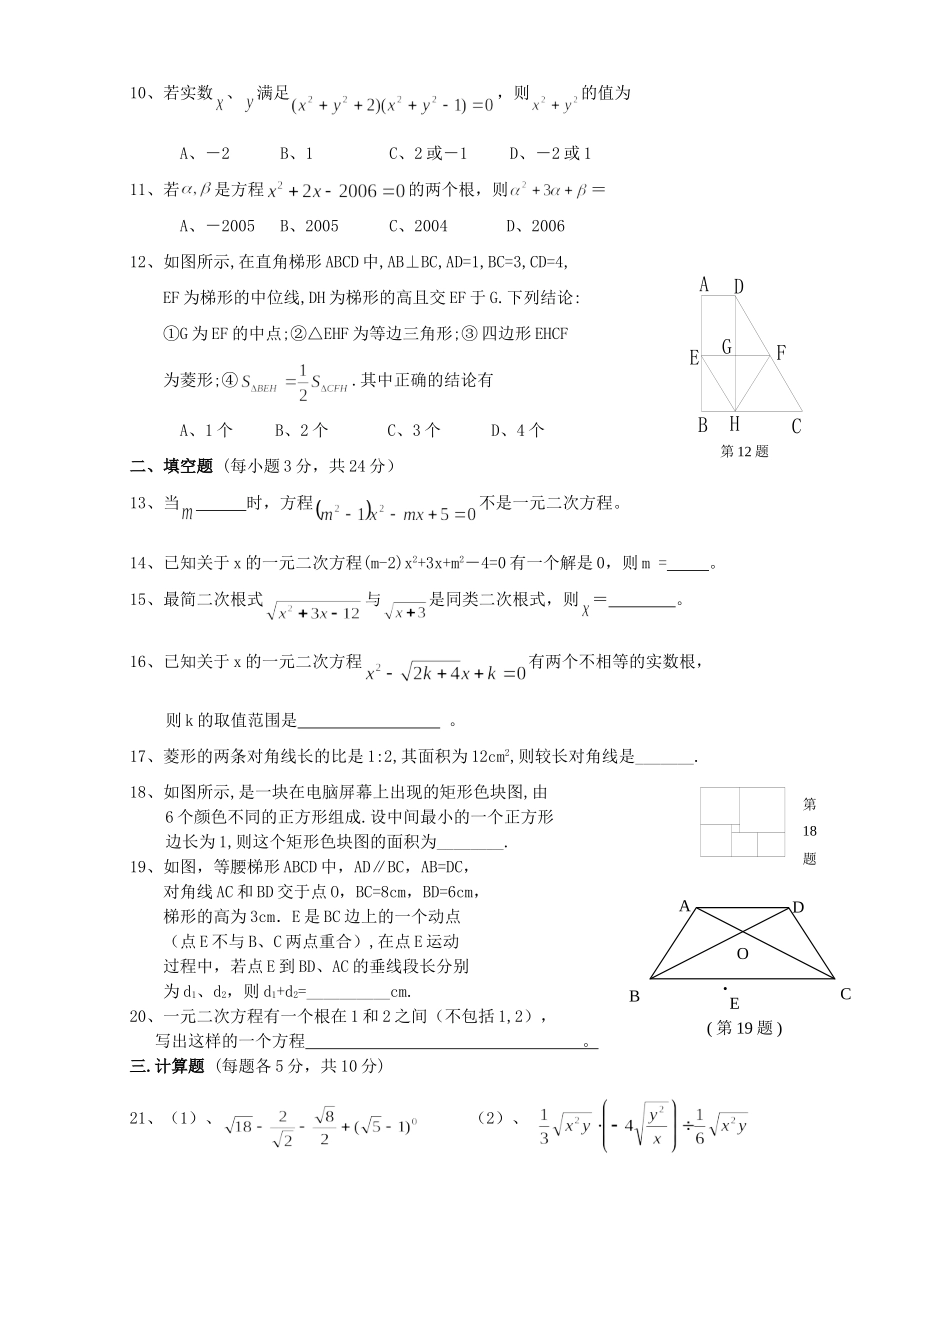 10、若实数 x、y 满足(x²+y²+2)(x²+y²-1)=0，则 x²+y² 的值为
A、－2 B、1 C、2 或－1 D、－2 或 1
11、若α,β是方程 x²+2x-2006=0 的两个根，则α²+3α+β＝
A、－2005 B、2005 C、2004 D、2006
12、如图所示,在直角梯形 ABCD 中,AB⊥BC,AD=1,BC=3,CD=4,
EF 为梯形的中位线,DH 为梯形的高且交 EF 于 G.下列结论:
①G 为 EF 的中点;②△EHF 为等边三角形;③ 四边形 EHCF
为菱形;④ S△BEH = 1/2 S△CFH .其中正确的结论有
A、1 个 B、2 个 C、3 个 D、4 个
A D
E G F
B H C
第 12 题
二、填空题 (每小题 3 分，共 24 分）
13、当 m ______时，方程(m²-1)x²-mx+5=0 不是一元二次方程。
14、已知关于 x 的一元二次方程(m-2)x²+3x+m²－4=0 有一个解是 0，则 m =_____。
15、最简二次根式 √(x²+3x-12) 与 √(x+3) 是同类二次根式，则 x＝________。
16、已知关于 x 的一元二次方程 x²-√(2k+4)x+k=0 有两个不相等的实数根，
则 k 的取值范围是_________________ 。
17、菱形的两条对角线长的比是 1:2,其面积为 12cm²,则较长对角线是_______.
18、如图所示,是一块在电脑屏幕上出现的矩形色块图,由
6 个颜色不同的正方形组成.设中间最小的一个正方形
边长为 1,则这个矩形色块图的面积为________.
第
18
题
19、如图，等腰梯形 ABCD 中，AD∥BC，AB=DC，
对角线 AC 和 BD 交于点 O，BC=8cm，BD=6cm，
梯形的高为 3cm．E 是 BC 边上的一个动点
（点 E 不与 B、C 两点重合）,在点 E 运动
过程中，若点 E 到 BD、AC 的垂线段长分别
为 d₁、d₂，则 d₁+d₂=__________cm.
A D
O
B E C
( 第 19 题 )
20、一元二次方程有一个根在 1 和 2 之间（不包括 1,2），
写出这样的一个方程_________________________________。
三.计算题 (每题各 5 分，共 10 分)
21、（1）、√18 - 2/√2 - √8/2 + (√5-1)⁰ （2）、 1/3 √(x²y)·(-4√(y²/x))÷1/6 √(x²y)